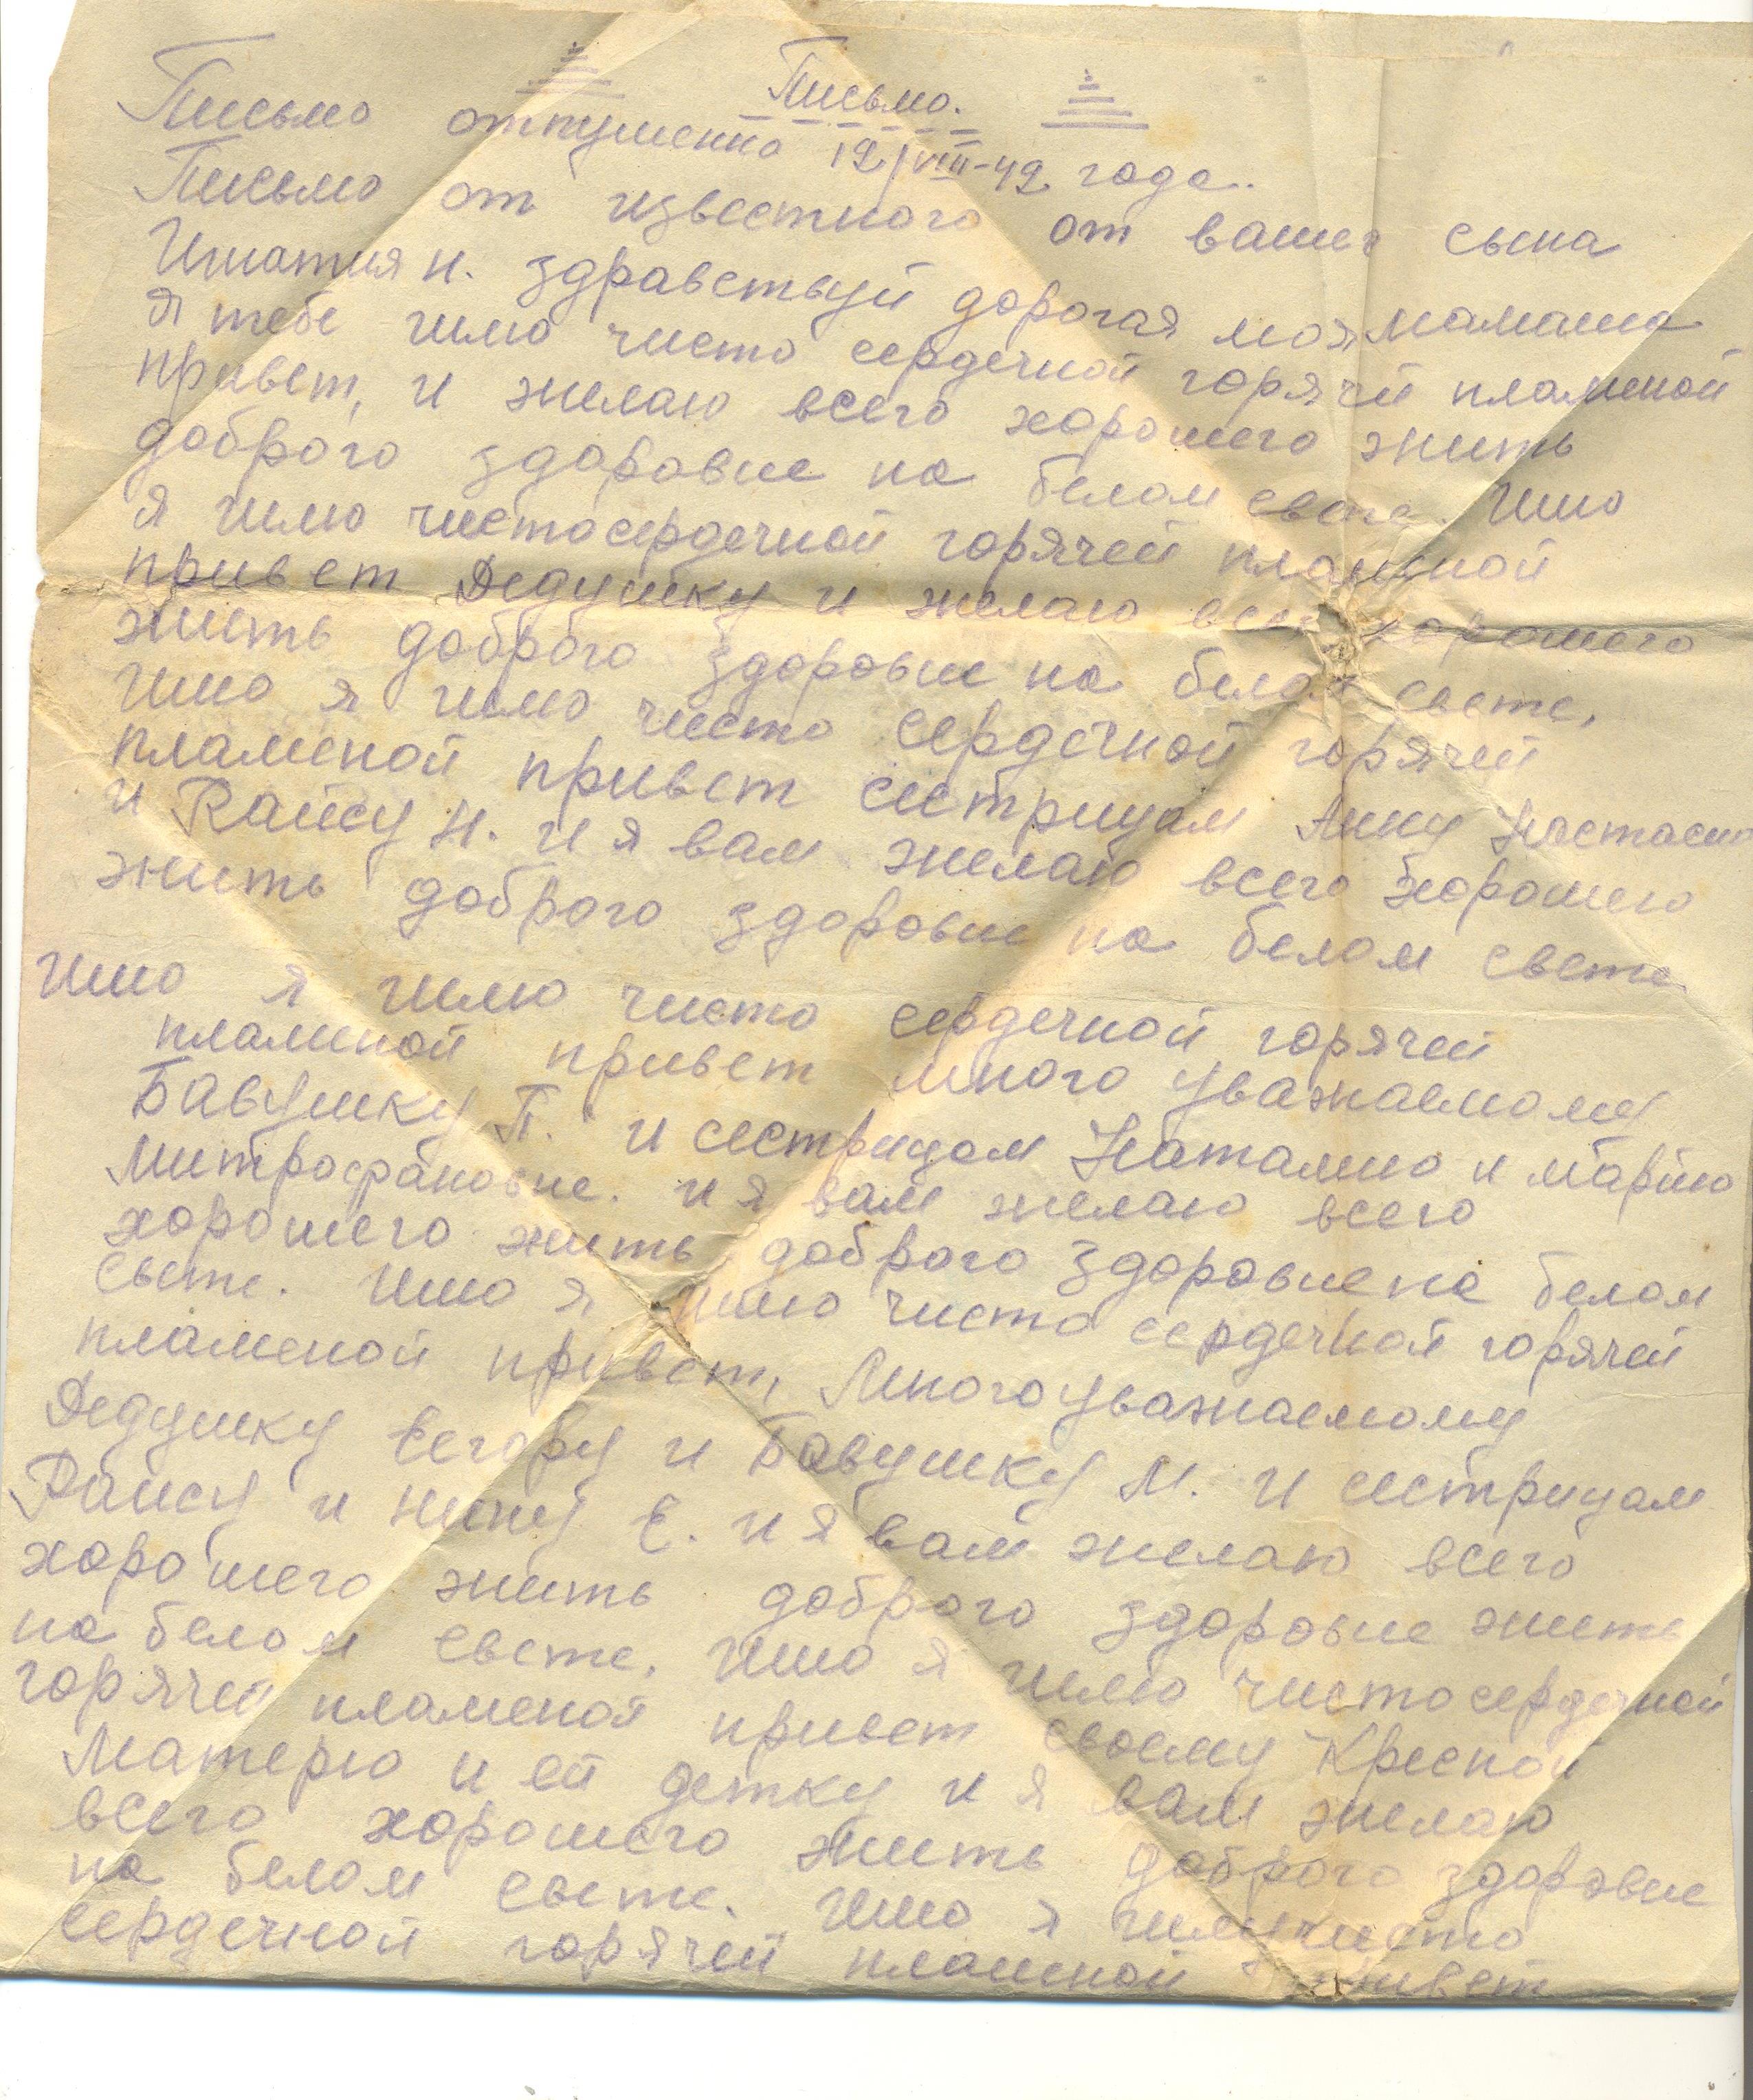 Письмо.
Письмо отпущенно 12/VIII-42 года.
Письмо от известного от вашег сына
Игнатия Н. здравствуй дорогая моя мамаша
Я тебе шлю чисто сердечной горячей пламеной
привет, и желаю всего хорошего жить
доброго здоровие на белом свете. Ишо
я шлю чистосердечной горячей пламеной
привет Дедушку и желаю всег хорошего
жить доброго здоровие на белом свете,
Ишо я шлю чисто сердечной горячей
пламеной привет сестрицам Анну Настасию
и Раису Н. и я вам желаю всего хорошего
жить доброго здоровие на белом свете
Ишо я шлю чисто сердечной горячей
пламеной привет много уважаемому
Бавушку П. и сестрицам Наталию и Марию
Митрофановне. и я вам желаю всего
хорошего жить доброго здоровие на белом
свете. Ишо я шлю чисто сердечной горячей
пламеной привет, Многоуважаемому
Дедушку Егору и Бавушку М. и сестрицам
Раису и Нину Е. и я вам желаю всего
хорошего жить доброго здоровие жить
на белом свете. Ишо я шлю чистосердечной
горячей пламеной привет своему Кресной
Матерю и ей детку и я вам желаю
всего хорошего жить доброго здоровие
на белом свете. Ишо я шлю чисто
сердечной горячей пламеной привет